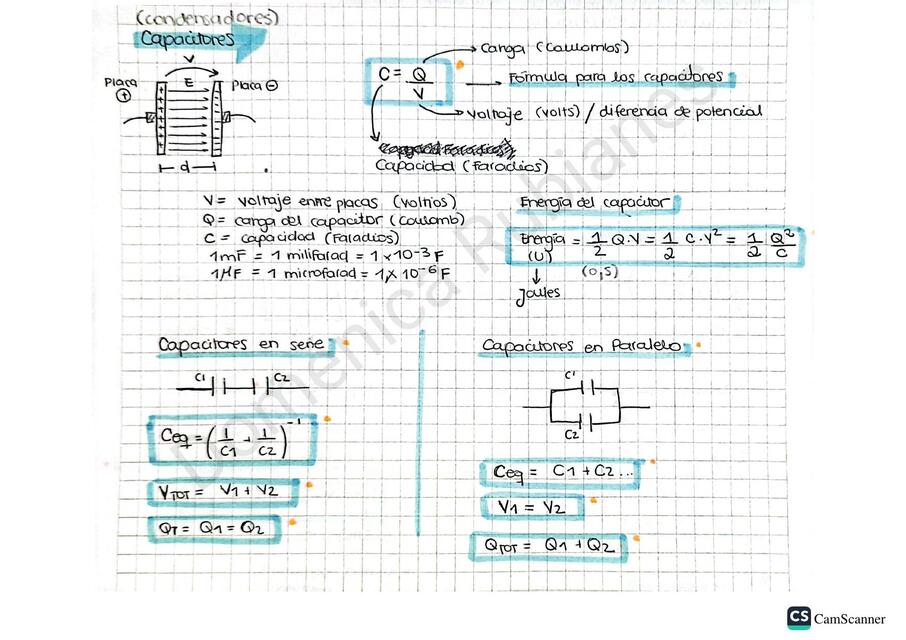 (condensadores)
Capacitores
V
Placa
+
E
Placa ⊖
d
C = Q/V
Carga (Coulombs)
Fórmula para los capacitores
Voltaje (volts) / diferencia de potencial
Capacidad (Faradios)
V = voltaje entre placas (voltios)
Q = carga del capacitor (Coulomb)
C = capacidad (Faradios)
1mF = 1 milifarad = 1 × 10⁻³ F
1μF = 1 microfarad = 1 × 10⁻⁶ F
Energía del capacitor
Energía = 1/2 Q.V = 1/2 C.V² = 1/2 Q²/C
(U)
(0,5)
Joules
Capacitores en serie
C1 C2
Ceq = (1/C1 + 1/C2)⁻¹
VTOT = V1 + V2
QT = Q1 = Q2
Capacitores en Paralelo
C1
C2
Ceq = C1 + C2 ...
V1 = V2
QTOT = Q1 + Q2
Domenica Rubianes
CS CamScanner